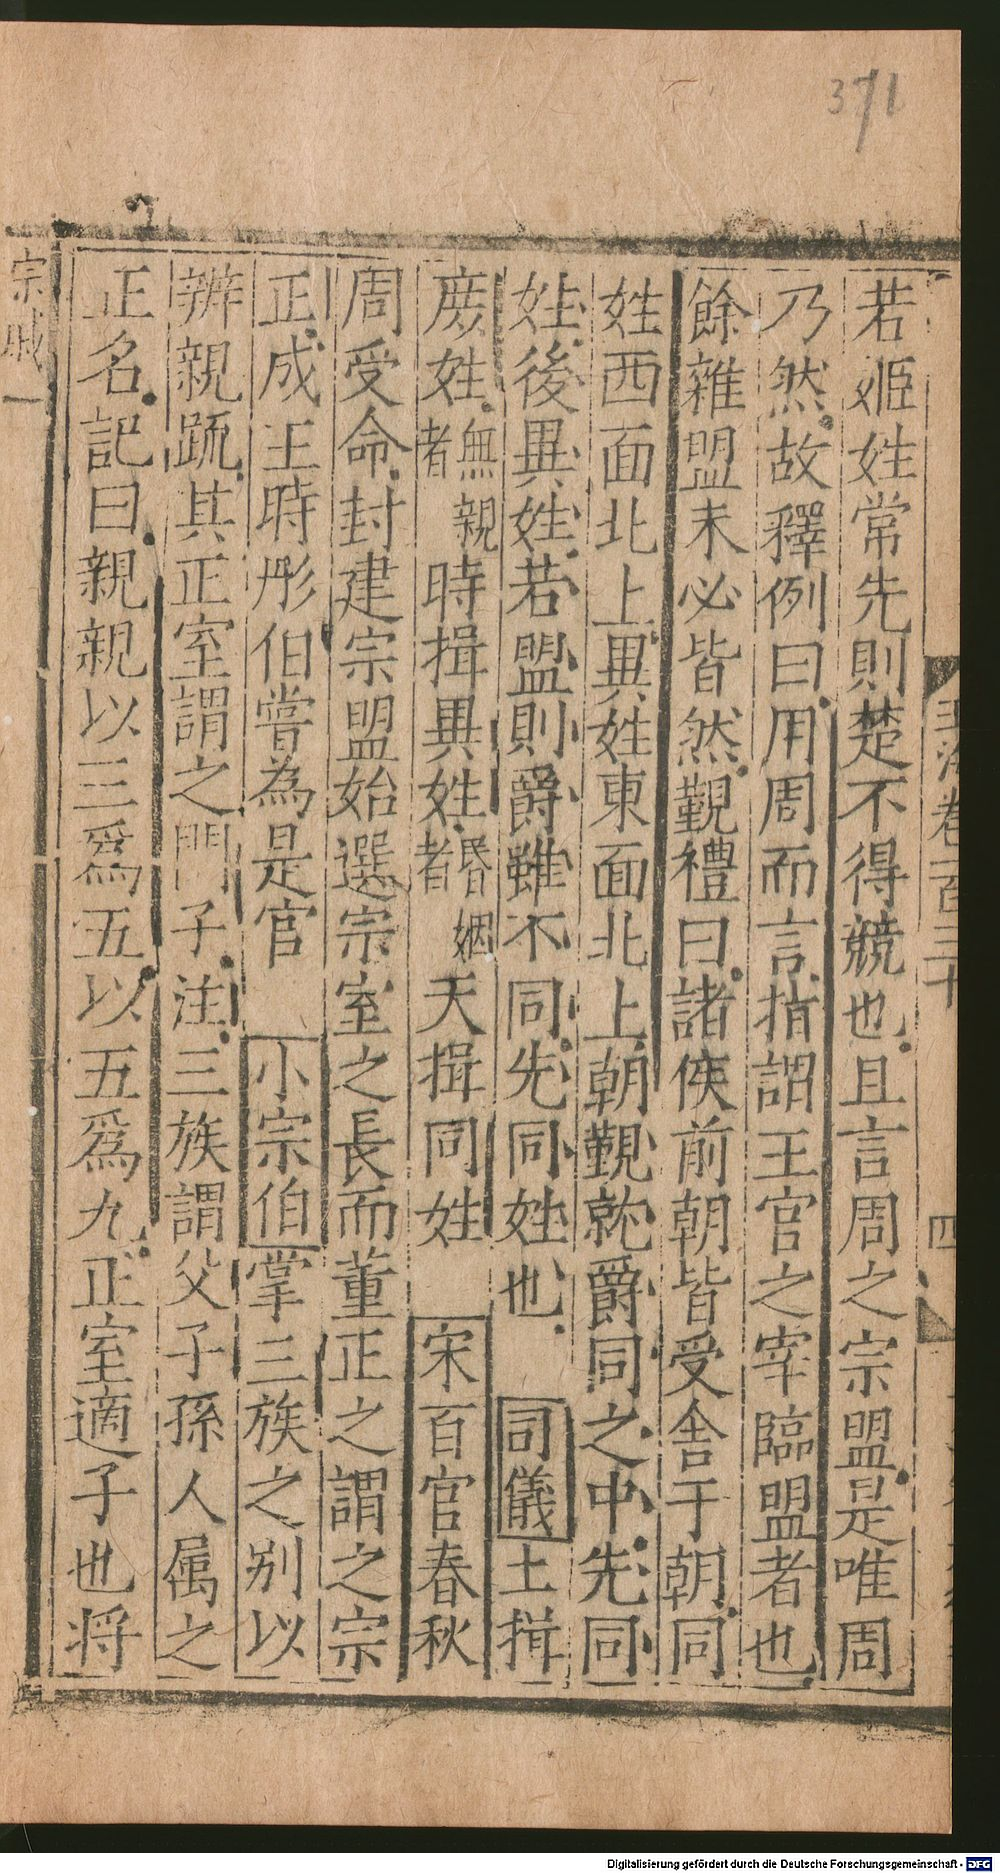 371
若姬姓常先則楚不得競也且言周之宗盟是唯周
乃然故釋例曰用周而言指謂王官之宰臨盟者也
餘雜盟未必皆然覲禮曰諸侯前朝皆受舍于朝同
姓西面北上異姓東面北上朝覲就爵同之中先同
姓後異姓若盟則爵雖不同先同姓也 司儀土揖
庶姓無親者時揖異姓婚姻者天揖同姓 宋百官春秋
周受命封建宗盟始選宗室之長而董正之謂之宗
正成王時彤伯嘗為是官 小宗伯掌三族之别以
辨親䟽其正室謂之門子注三族謂父子孫人属之
正名記曰親親以三爲五以五爲九正室適子也将
宗戚一
玉海卷一百三十
四
Digitalisierung gefördert durch die Deutsche Forschungsgemeinschaft - DFG